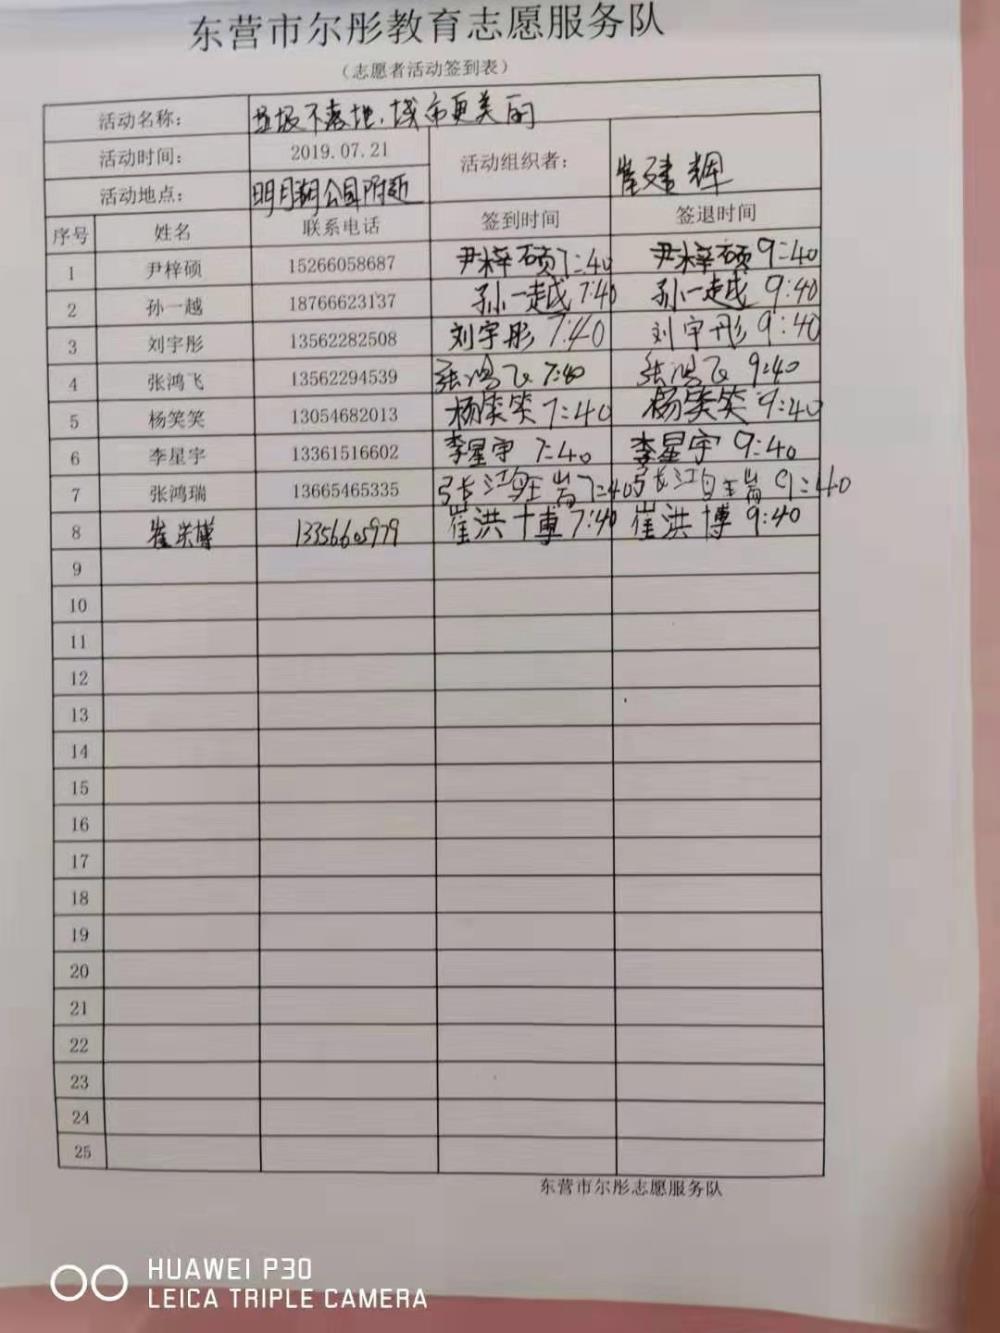 东营市尔彤教育志愿服务队
（志愿者活动签到表）
活动名称： 垃圾不落地，城市更美丽
活动时间： 2019.07.21 活动组织者： 崔建辉
活动地点： 明月湖公园附近
序号 姓名 联系电话 签到时间 签退时间
1 尹梓硕 15266058687 尹梓硕7:40 尹梓硕9:40
2 孙一越 18766623137 孙一越 7:40 孙一越 9:40
3 刘宇彤 13562282508 刘宇彤 7:40 刘宇彤 9:40
4 张鸿飞 13562294539 张鸿飞 7:40 张鸿飞 9:40
5 杨笑笑 13054682013 杨笑笑 7:40 杨笑笑 9:40
6 李星宇 13361516602 李星宇 7:40 李星宇 9:40
7 张鸿瑞 13665465335 张鸿瑞7:40 张鸿瑞 9:40
8 崔洪博 13356605979 崔洪博 7:40 崔洪博 9:40
9
10
11
12
13
14
15
16
17
18
19
20
21
22
23
24
25
东营市尔彤志愿服务队
HUAWEI P30
LEICA TRIPLE CAMERA